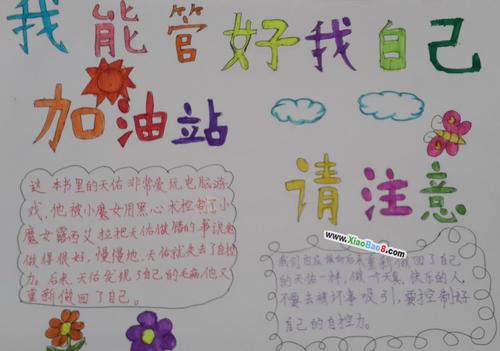 我能管好我自己
加油站
请注意
www.XiaoBao8.com
这本书里的天佑非常爱玩电脑游
戏，他被小魔女用黑心术控制了小
魔女露西艾拉把天佑做错的事说成
做得很好，慢慢地，天佑就失去了自控
力。后来，天佑发现了自己的毛病，他又
重新做回了自己。
我们也应该向后来重新做回了自己
的天佑一样，做一个天真、快乐的人，
不要去被坏事吸引，要控制好
自己的自控力。